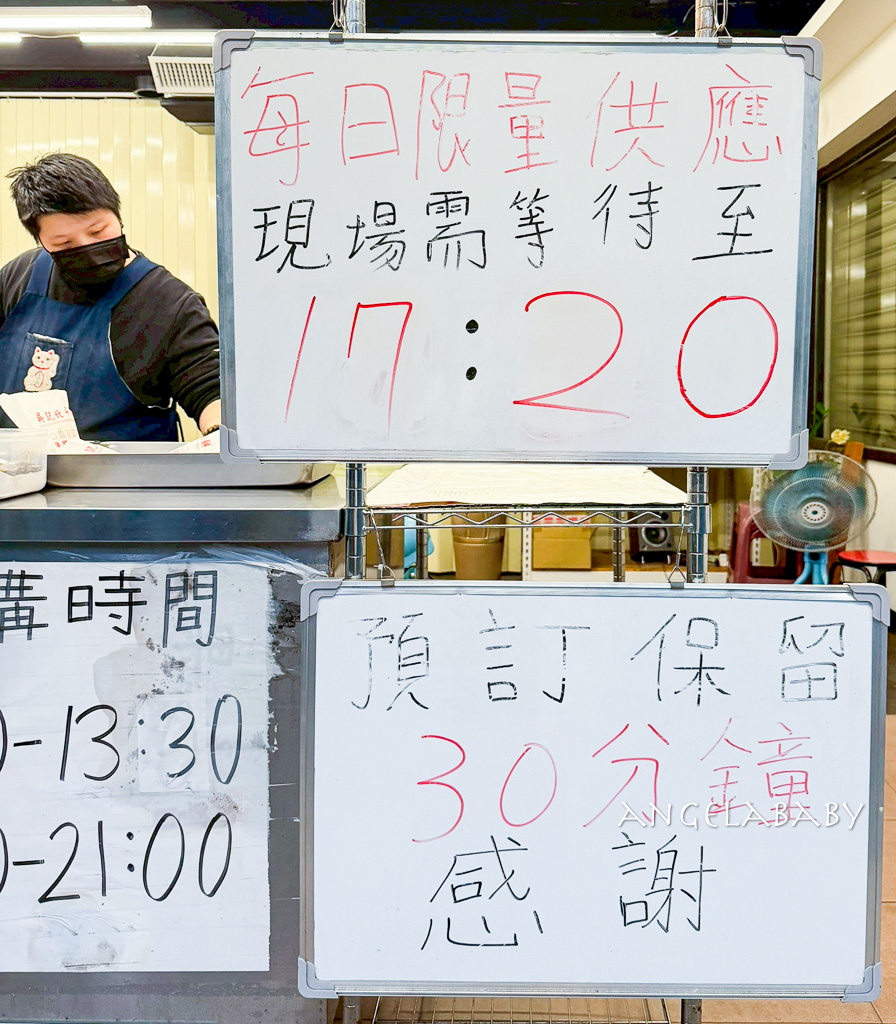 每日限量供應
現場需等待至
17:20
購時間
0-13:30
0-21:00
預訂保留
30分鐘
感謝
ANGELABABY